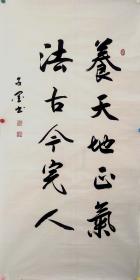 養天地正氣
法古今完人
子墨書